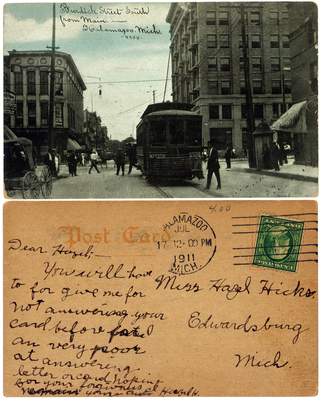 Burdick Street South
from Main.—
Kalamazoo, Mich.
4.00
Post Card
KALAMAZOO
JUL
17 12-00 PM
1911
MICH.
Dear Hazel:-
You will have
to for give me for
not answering your
card before
an very poor
at answering
letter or card hoping
for your forgiveness I
remain yours Hazel H.
Miss Hazel Hicks.
Edwardsburg
Mich.